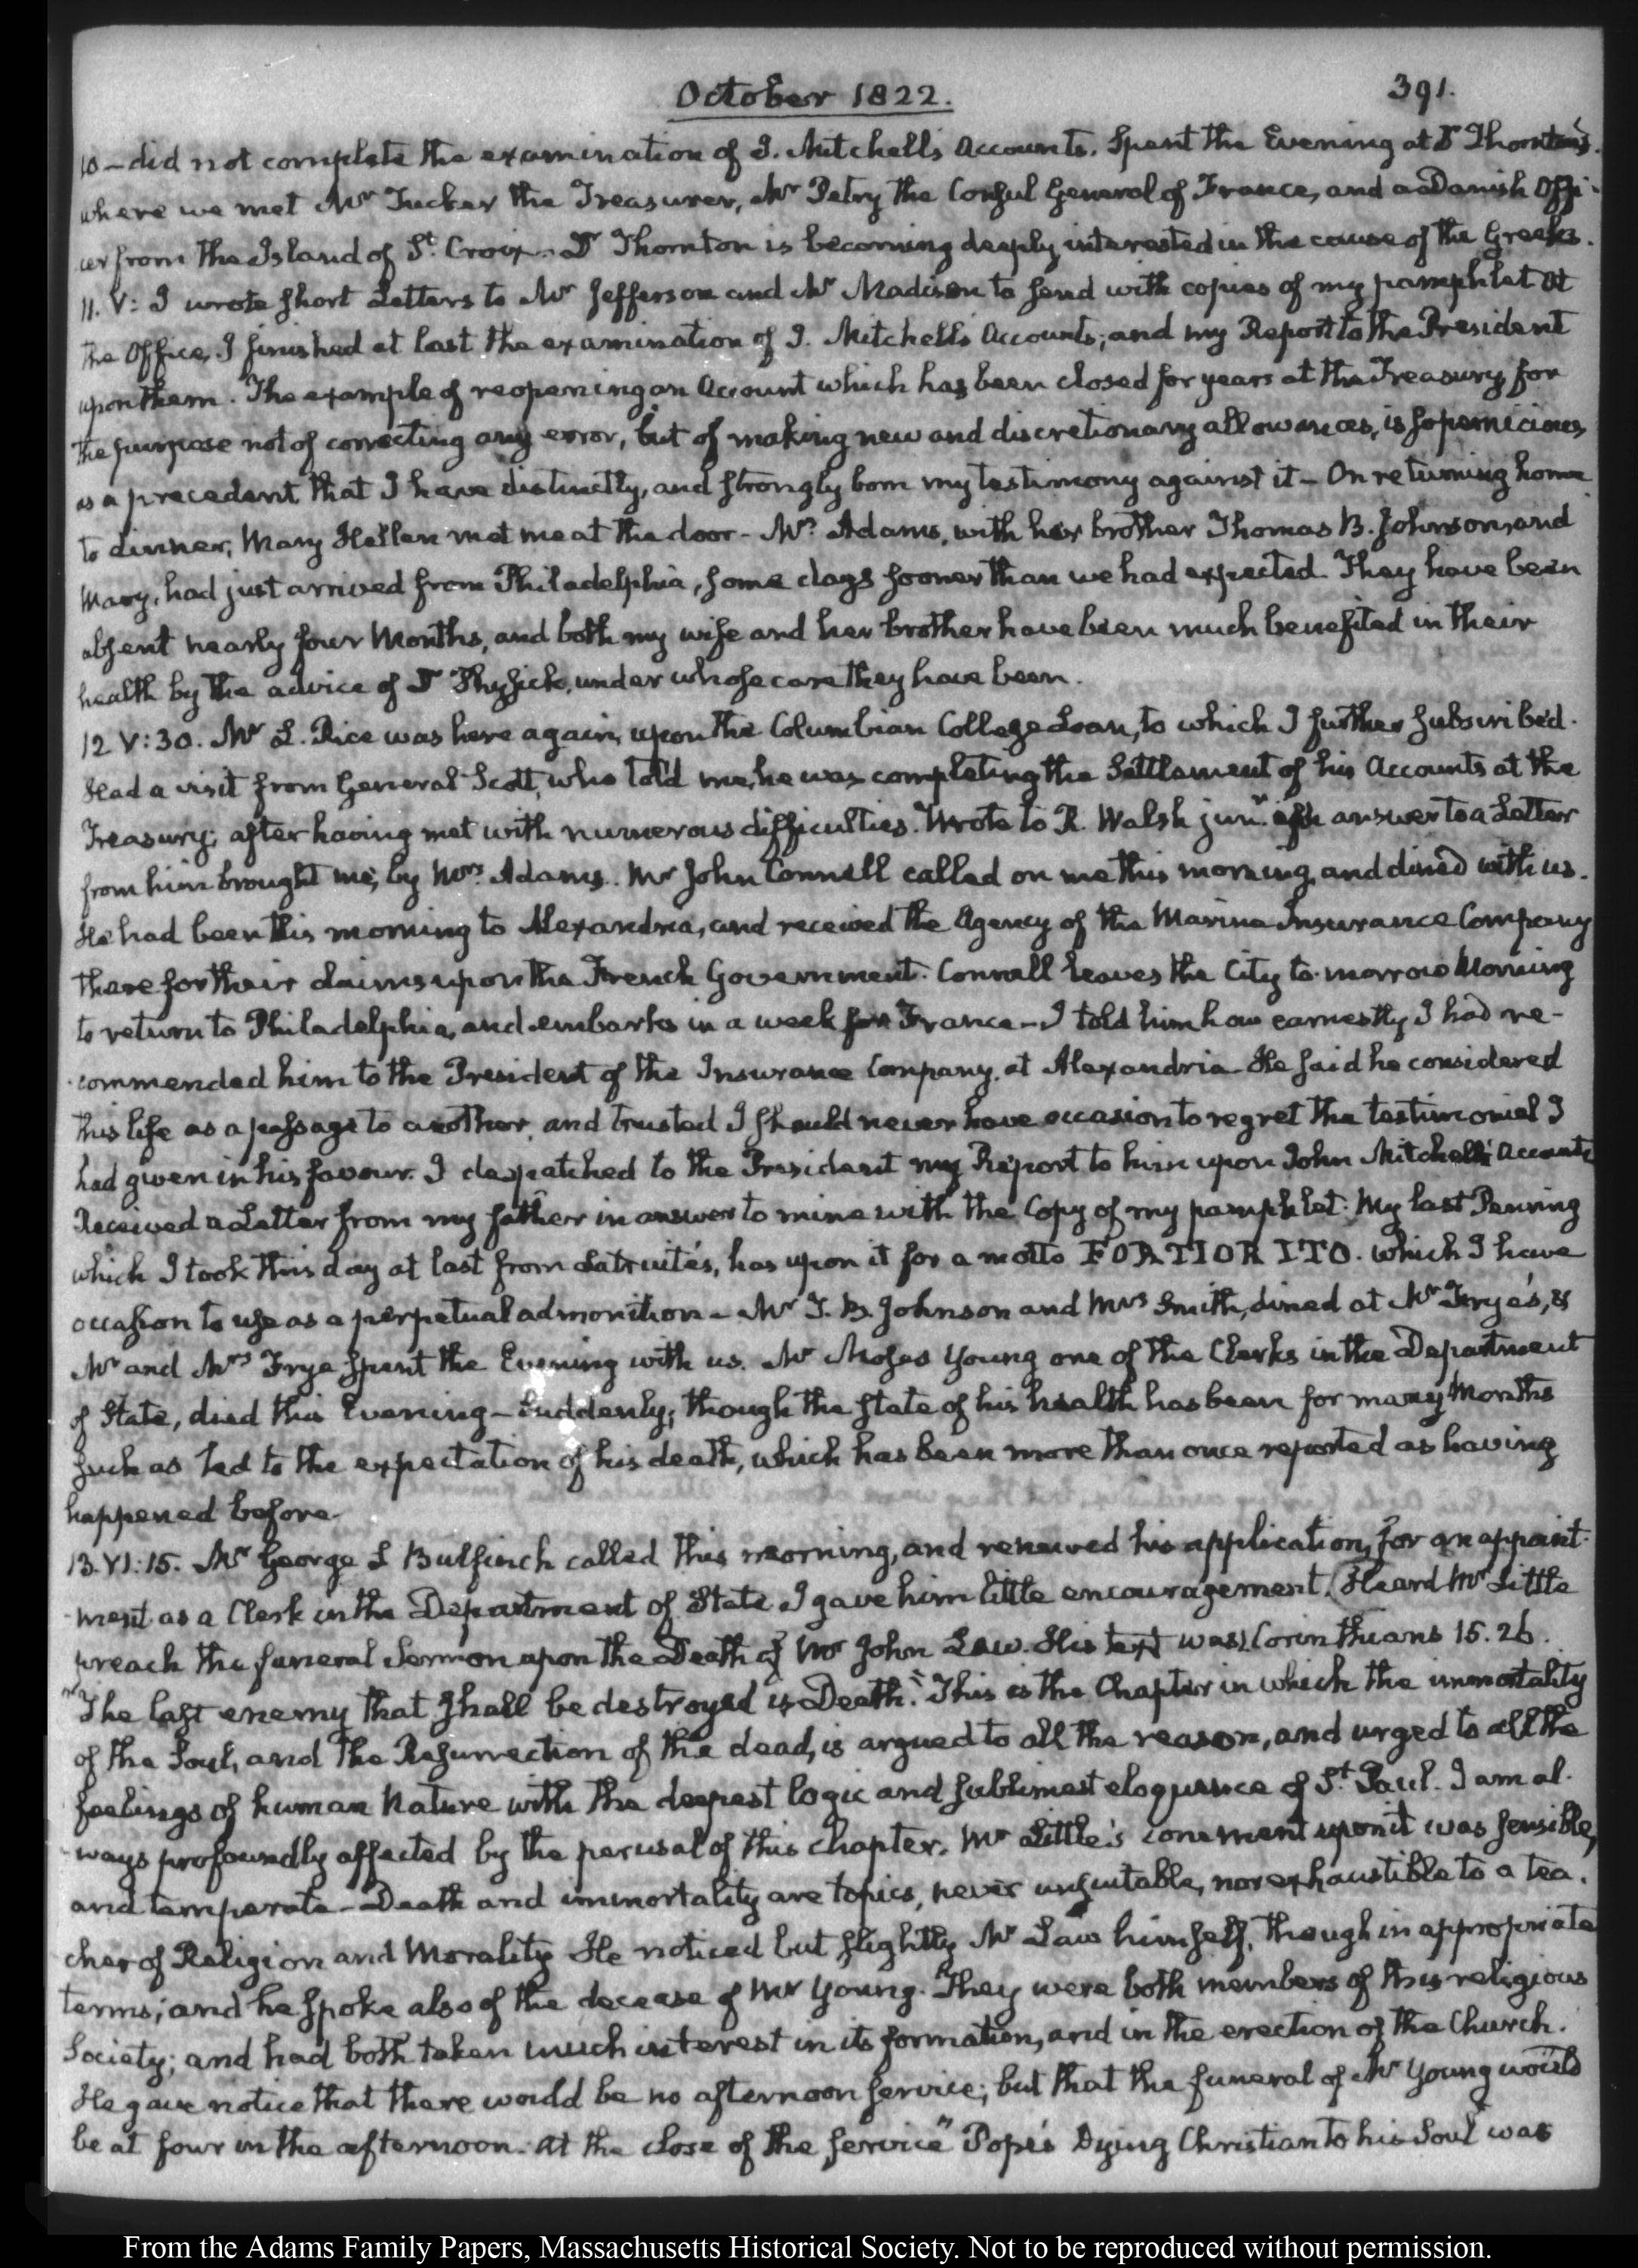 October 1822.
391.
10 — did not complete the examination of J. Mitchell's Accounts. Spent the Evening at Dr Thornton's.
where we met Mr Tucker the Treasurer, Mr Petry the Consul General of France, and a Danish Offi-
cer from the Island of St. Croix. Dr Thornton is becoming deeply interested in the cause of the Greeks.
11. V: I wrote short Letters to Mr Jefferson and Mr Madison to send with copies of my pamphlet. At
the Office, I finished at last the examination of J. Mitchell's Accounts; and my Report to the President
upon them. The example of reopening an Account which has been closed for years at the Treasury, for
the purpose not of correcting any error, but of making new and discretionary allowances, is so pernicious
as a precedent that I have distinctly, and strongly born my testimony against it — On returning home
to dinner, Mary Hellen met me at the door - Mrs Adams, with her brother Thomas B. Johnson, and
Mary, had just arrived from Philadelphia, some days sooner than we had expected. They have been
absent nearly four Months, and both my wife and her brother have been much benefited in their
health by the advice of Dr Physick, under whose care they have been.
12 V:30. Mr L. Rice was here again, upon the Columbian College Loan, to which I further subscribed.
Had a visit from General Scott, who told me, he was completing the Settlement of his Accounts at the
Treasury; after having met with numerous difficulties. Wrote to R. Walsh junr. answer to a Letter
from him brought me, by Mrs. Adams. Mr John Connell called on me this morning, and dined with us.
He had been this morning to Alexandria, and received the Agency of the Marine Insurance Company
there for their claims upon the French Government. Connell leaves the City to-morrow Morning
to return to Philadelphia, and embarks in a week for France — I told him how earnestly I had re-
-commended him to the President of the Insurance Company at Alexandria. He said he considered
this life as a passage to another, and trusted I should never have occasion to regret the testimonial I
had given in his favour. I despatched to the President my Report to him upon John Mitchell's Accounts
Received a Letter from my father in answer to mine with the Copy of my pamphlet. My last
which I took this day at last from has upon it for a motto FORTIOR ITO. which I have
occasion to use as a perpetual admonition — Mr T. B. Johnson and Mrs Smith, dined at Mr Frye's, &
Mr and Mrs Frye spent the Evening with us. Mr Moses Young one of the Clerks in the Department
of State, died this Evening — Suddenly; though the state of his health has been for many Months
such as led to the expectation of his death, which has been more than once reported as having
happened before.
13. VI:15. Mr George S Bulfinch called this morning, and renewed his application, for an appoint-
-ment as a Clerk in the Department of State. I gave him little encouragement. Heard Mr Little
preach the funeral Sermon upon the Death of Mr John Law. His text was 1. Corinthians 15.26.
"The last enemy that shall be destroyed is Death." This is the Chapter in which the immortality
of the Soul, and the Resurrection of the dead, is argued to all the reason, and urged to all the
feelings of human Nature with the deepest logic and sublimest eloquence of St. Paul. I am al-
-ways profoundly affected by the perusal of this chapter. Mr Little's comment upon it was sensible,
and temperate — Death and immortality are topics, never unsuitable, nor exhaustible to a tea-
cher of Religion and Morality. He noticed but slightly Mr Law himself, though in appropriate
terms; and he spoke also of the decease of Mr Young. They were both members of this religious
Society; and had both taken much interest in its formation, and in the erection of the Church.
He gave notice that there would be no afternoon service; but that the funeral of Mr Young would
be at four in the afternoon. At the close of the service" Pope's Dying Christian to his Soul was
From the Adams Family Papers, Massachusetts Historical Society. Not to be reproduced without permission.